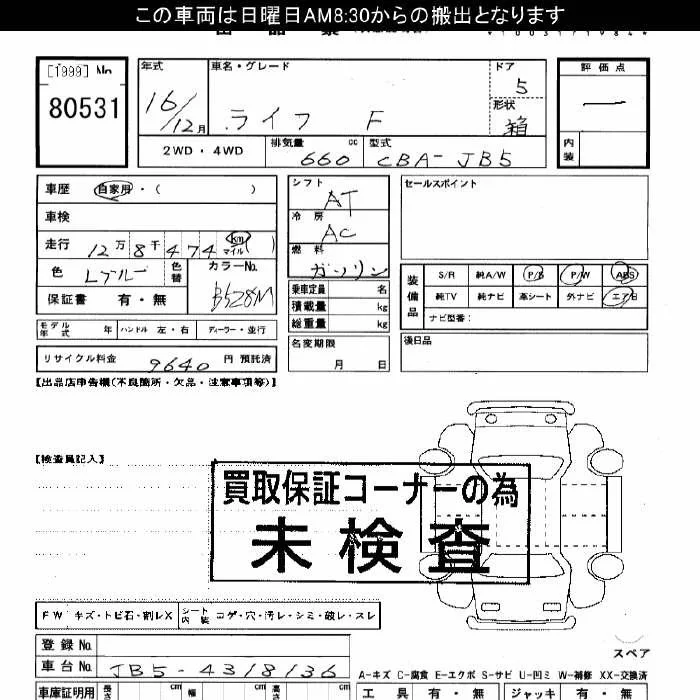 この車両は日曜日AM8:30からの搬出となります
[1999] No
80531
年式 車名・グレード ドア 評価点
16/12月 ライフ F 5 ー
形状 箱
2WD・4WD 排気量 660 cc 型式 CBA-JB5 内装
車歴 自家用・( )
シフト AT
セールスポイント
車検
冷房 AC
走行 12万8千474 km マイル
燃料 ガソリン
色 Lブルー 色替 カラーNo. B528M
保証書 有・無
乗車定員 名
積載量 kg
総重量 kg
装備品 S/R 純A/W P/S P/W ABS
純TV 純ナビ 革シート 外ナビ エアB
ナビ型番:
モデル年式 年 ハンドル 左・右 ディーラー・並行
名変期限 月 日
後日品
リサイクル料金 9640 円 預託済
【出品店申告欄(不良箇所・欠品・注意事項等)】
【検査員記入】
買取保証コーナーの為
未検査
FW キズ・トビ石・割レX シート内装 コゲ・穴・汚レ・シミ・破レ・スレ
登録No.
車台No. JB5-4318136
スペア
A-キズ C-腐食 E-エクボ S-サビ U-凹ミ W-補修 XX-交換済
車庫証明用 長さ cm 幅 cm 高さ cm
工具 有・無 ジャッキ 有・無